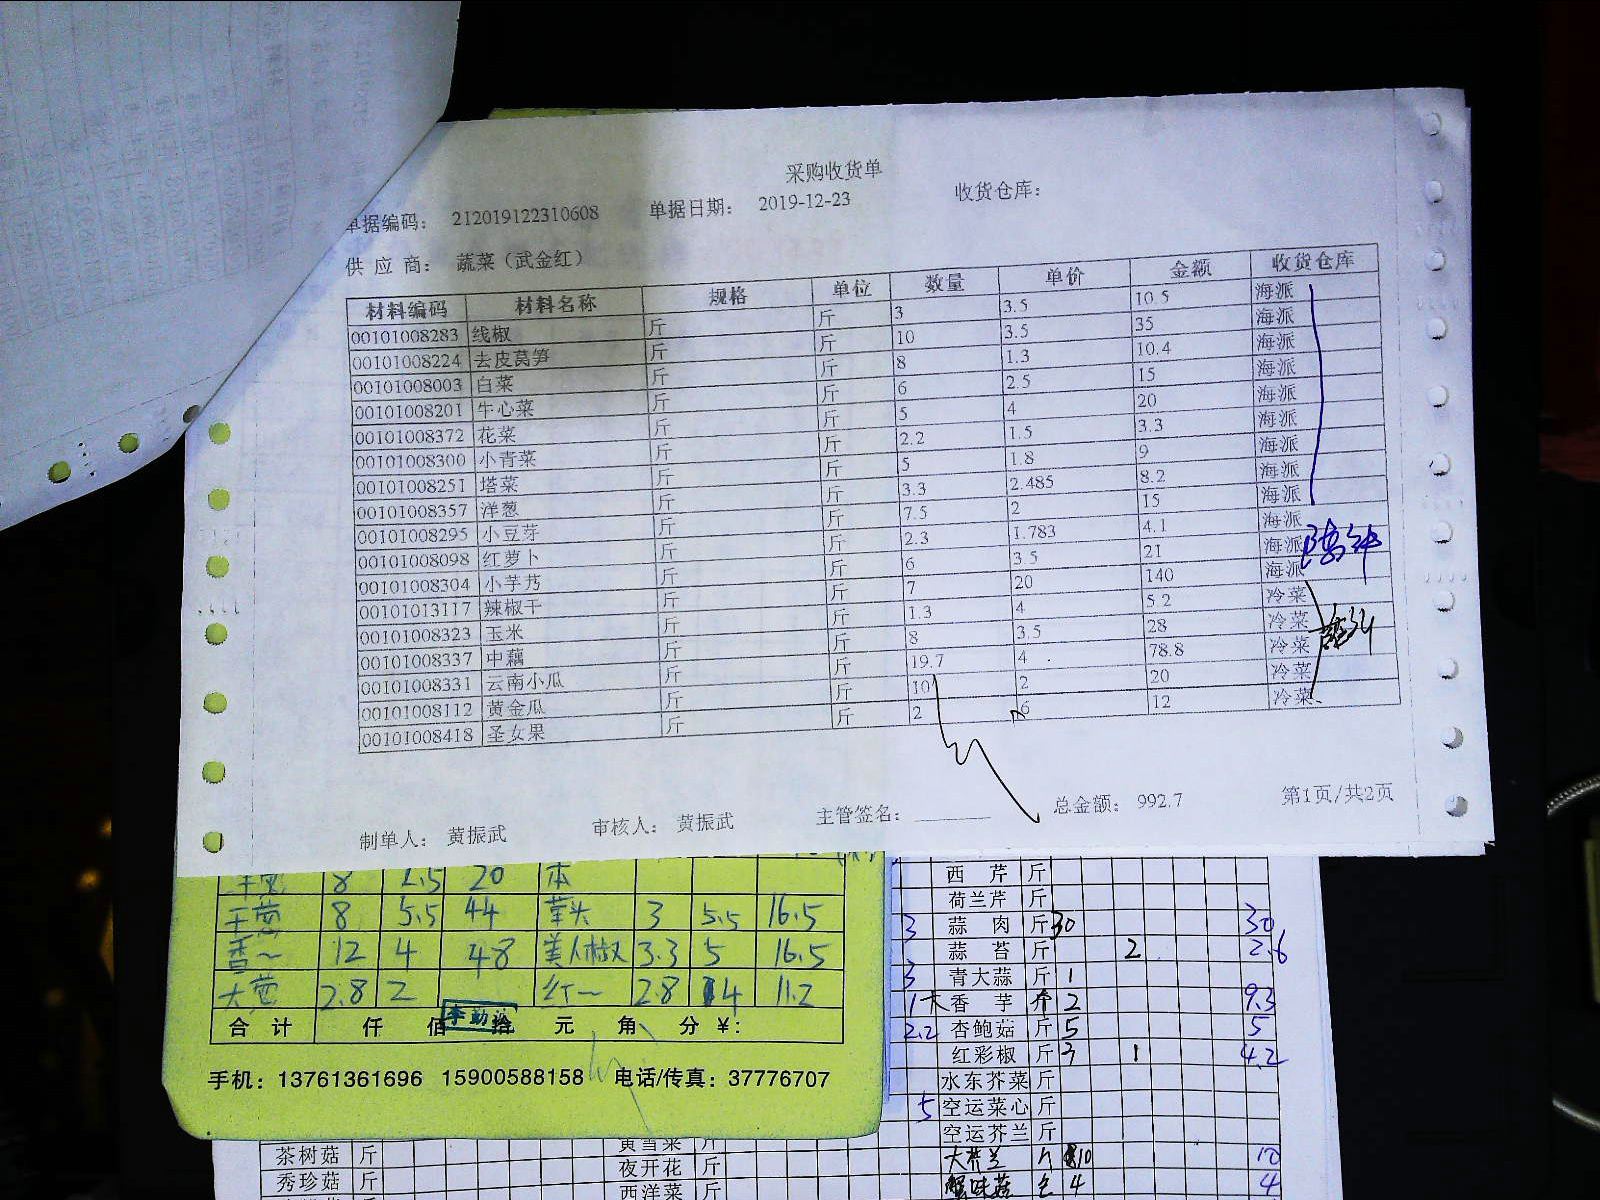 采购收货单
单据编码： 212019122310608 单据日期： 2019-12-23 收货仓库：
供 应 商： 蔬菜（武金红）
材料编码 材料名称 规格 单位 数量 单价 金额 收货仓库
00101008283 线椒 斤 斤 3 3.5 10.5 海派
00101008224 去皮莴笋 斤 斤 10 3.5 35 海派
00101008003 白菜 斤 斤 8 1.3 10.4 海派
00101008201 牛心菜 斤 斤 6 2.5 15 海派
00101008372 花菜 斤 斤 5 4 20 海派
00101008300 小青菜 斤 斤 2.2 1.5 3.3 海派
00101008251 塔菜 斤 斤 5 1.8 9 海派
00101008357 洋葱 斤 斤 3.3 2.485 8.2 海派
00101008295 小豆芽 斤 斤 7.5 2 15 海派
00101008098 红萝卜 斤 斤 2.3 1.783 4.1 海派
00101008304 小芋艿 斤 斤 6 3.5 21 海派
00101013117 辣椒干 斤 斤 7 20 140 海派
00101008323 玉米 斤 斤 1.3 4 5.2 冷菜
00101008337 中藕 斤 斤 8 3.5 28 冷菜
00101008331 云南小瓜 斤 斤 19.7 4 78.8 冷菜
00101008112 黄金瓜 斤 斤 10 2 20 冷菜
00101008418 圣女果 斤 斤 2 6 12 冷菜
制单人： 黄振武 审核人： 黄振武 主管签名： 总金额： 992.7 第1页/共2页
8 2.5 20
干葱 8 5.5 44 草头 3 5.5 16.5
香～ 12 4 48 美人椒 3.3 5 16.5
大葱 2.8 2 红～ 2.8 4 11.2
合 计 仟 佰 拾 元 角 分 ¥:
手机：13761361696 15900588158 电话/传真：37776707
西 芹 斤
荷兰芹 斤
3 蒜 肉 斤 30 30
蒜 苔 斤 2 2.6
3 青大蒜 斤 1
1 大香 芋 个 2 9.3
2.2 杏鲍菇 斤 5 5
红彩椒 斤 3 1 4.2
水东芥菜 斤
5 空运菜心 斤
空运芥兰 斤
茶树菇 斤 黄雪菜 斤 大芥兰 10 10
秀珍菇 斤 夜开花 斤 蟹味菇 4 4
西洋菜 斤